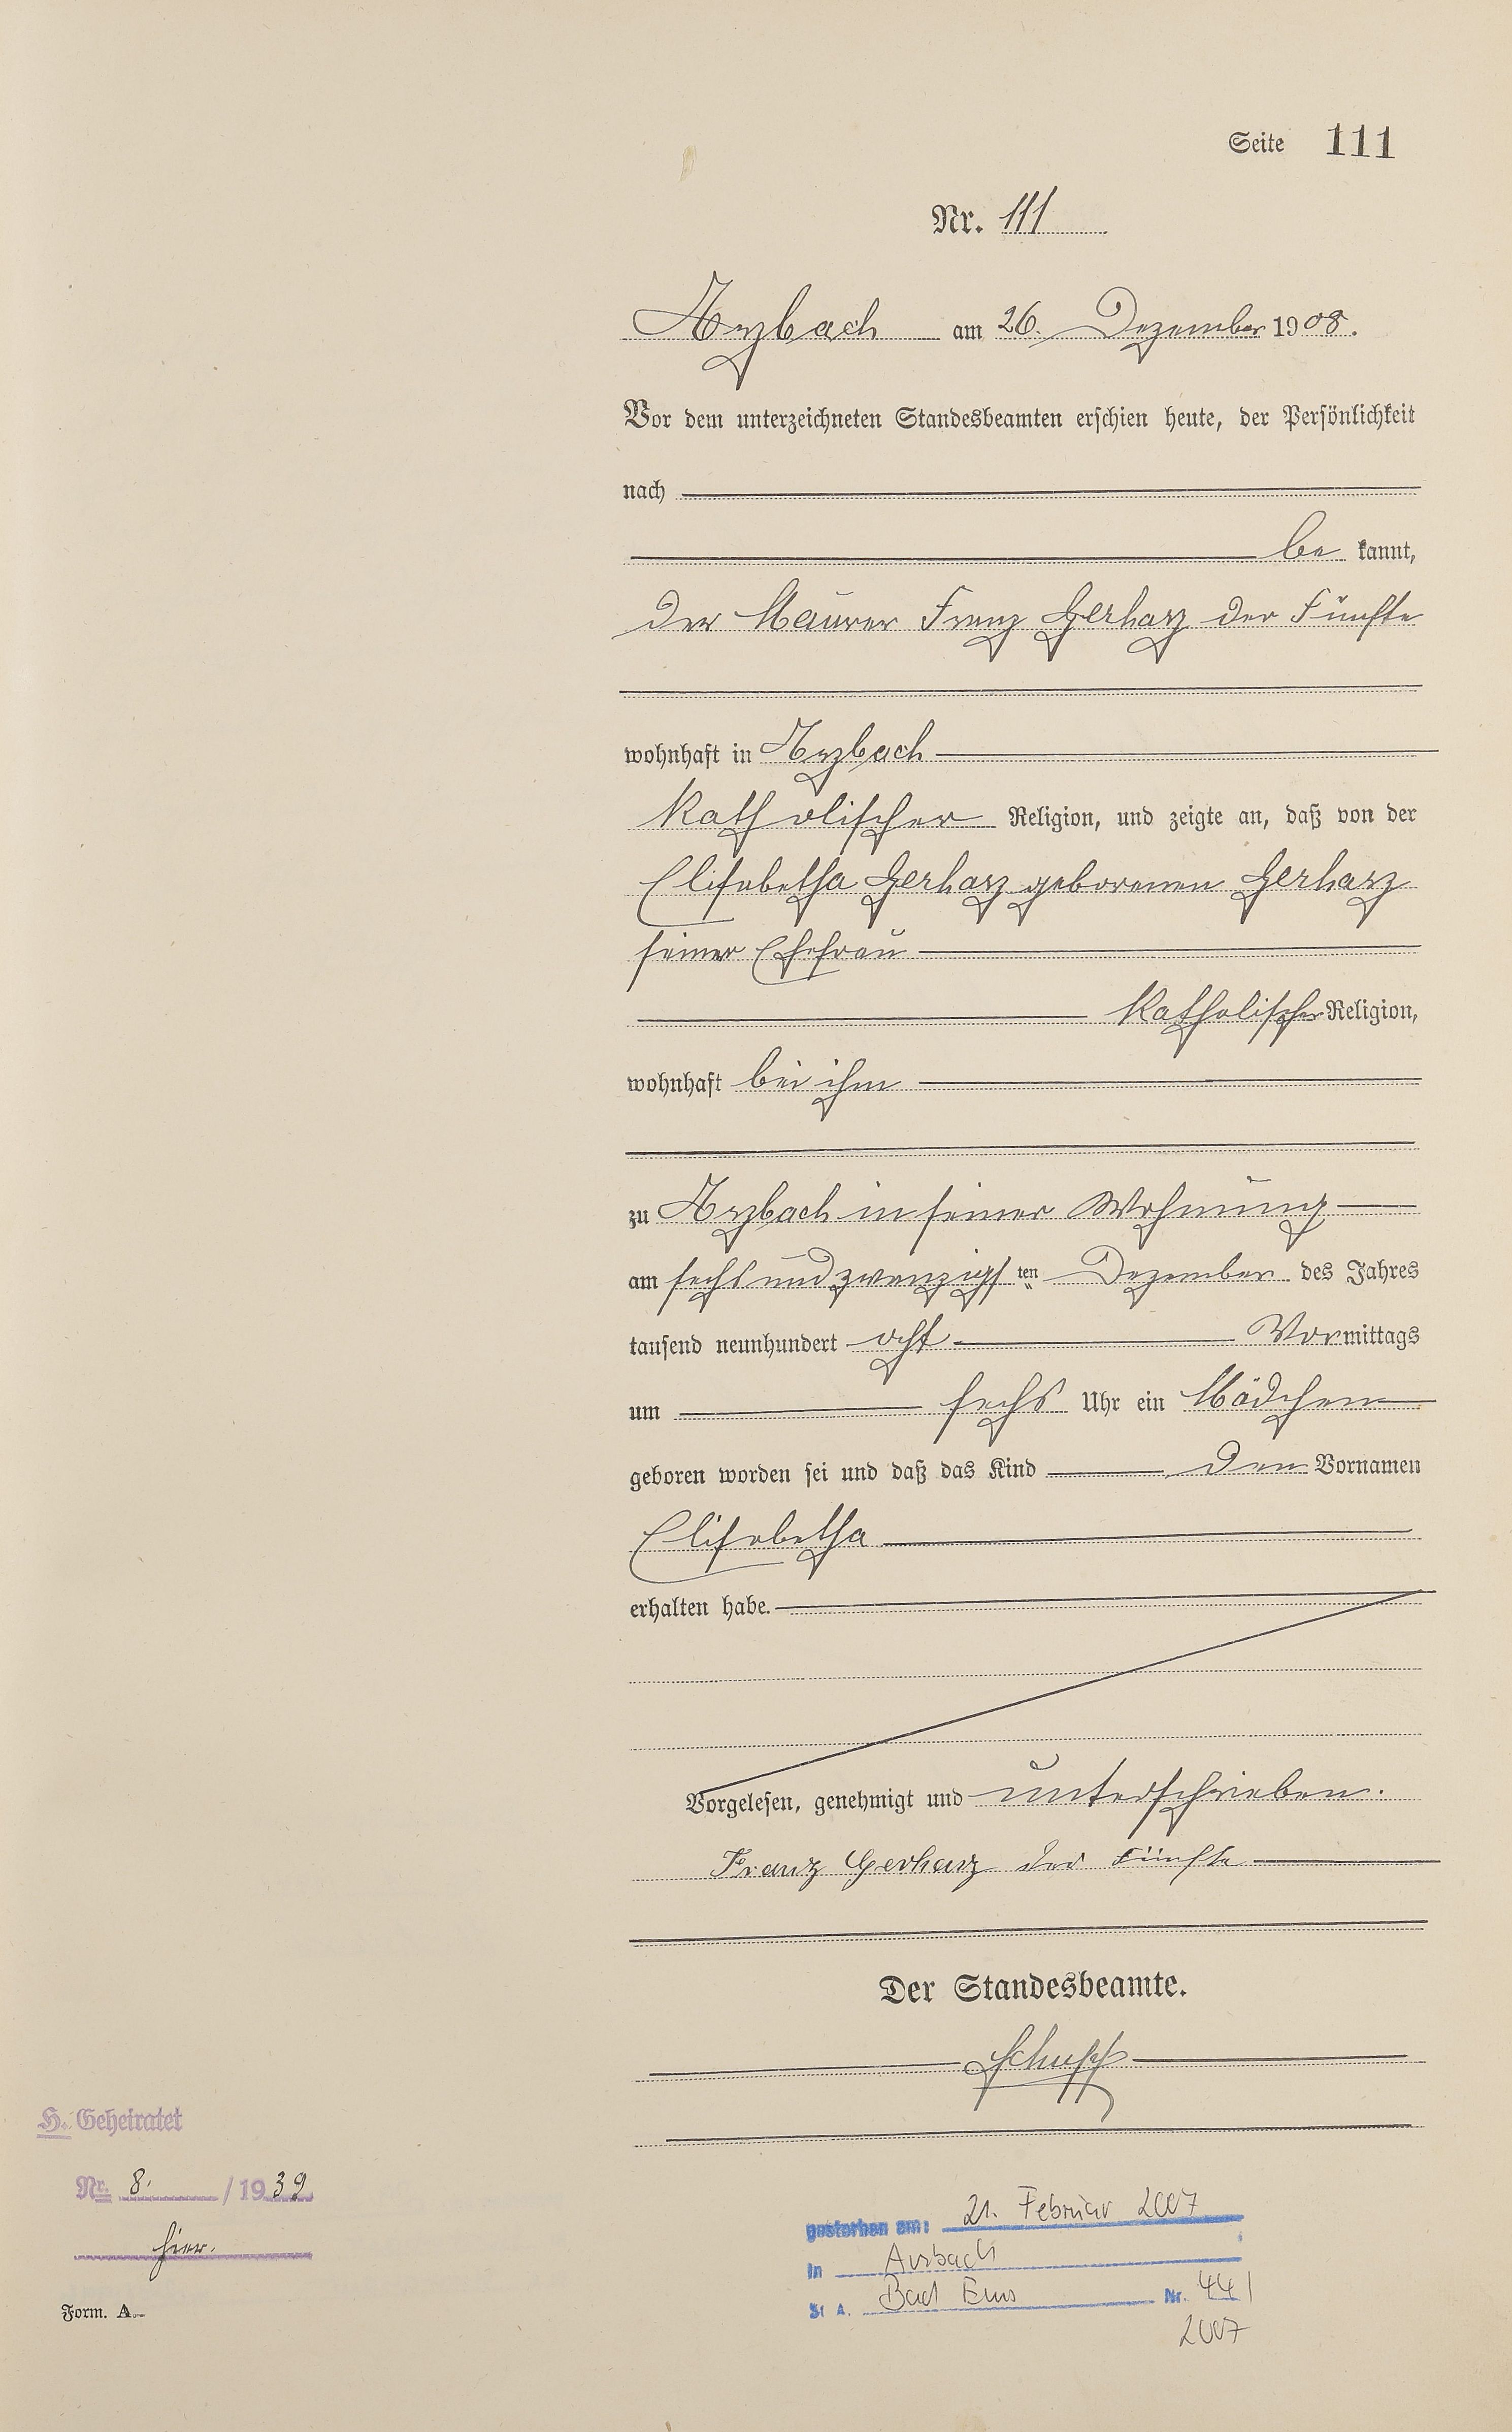 Seite 111
Nr. 111
Arzbach am 26. Dezember 1908.
Vor dem unterzeichneten Standesbeamten erschien heute, der Persönlichkeit
nach
be kannt,
der Maurer Franz Gerharz der Fünfte
wohnhaft in Arzbach
katholischer Religion, und zeigte an, daß von der
Elisabetha Gerharz geborenen Gerharz
seiner Ehefrau
katholischer Religion,
wohnhaft bei ihm
zu Arzbach in seiner Wohnung
am sechs und zwanzigs ten Dezember des Jahres
tausend neunhundert acht Vormittags
um sechs Uhr ein Mädchen
geboren worden sei und daß das Kind den Vornamen
Elisabetha
erhalten habe.
Vorgelesen, genehmigt und unterschrieben.
Franz Gerharz der Fünfte
Der Standesbeamte.
Schupp
H. Geheiratet
Nr. 8. / 1939
hier.
Form. A.
gestorben am: 21. Februar 2007
in Arzbach
St A. Bad Ems Nr. 44 /
2007